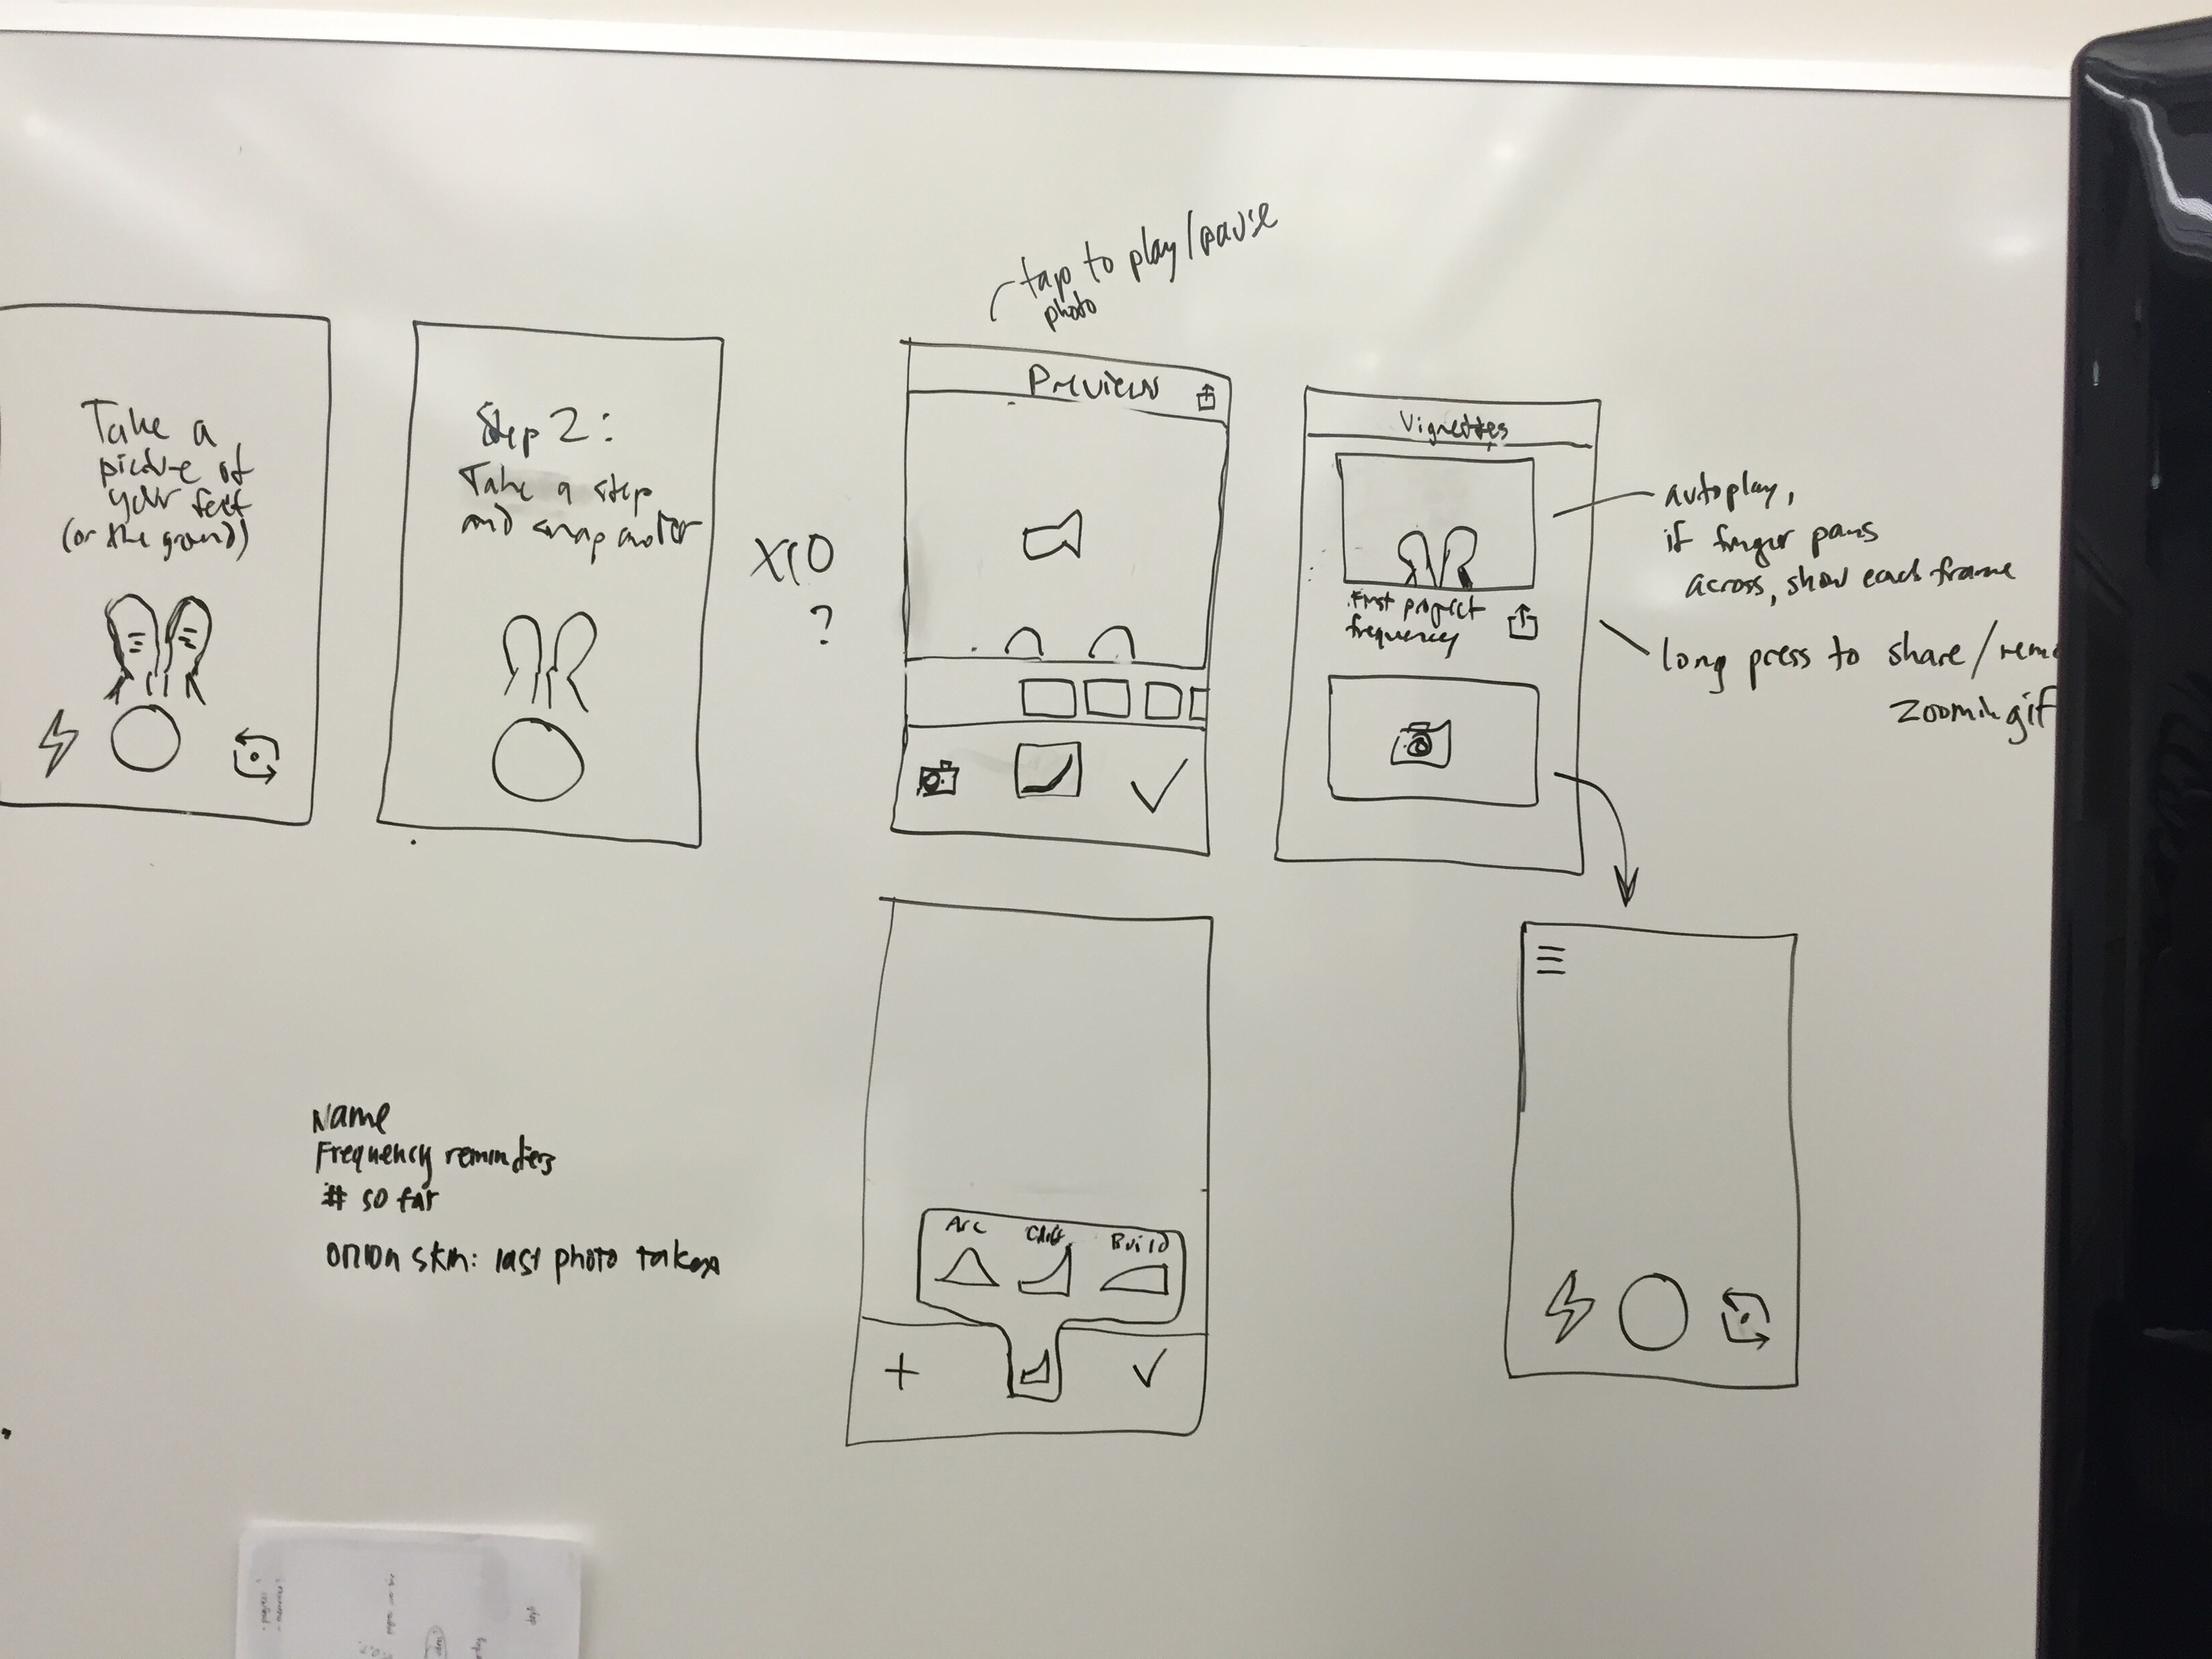 Take a
picture of
your feet
(or the ground)
Step 2:
Take a step
and snap another
X10
?
tap to play/pause
photo
Preview
Vignettes
First project
frequency
autoplay,
if finger pans
across, show each frame
long press to share/remo
zoom in gif
Name
Frequency reminders
# so far
onion skin: last photo taken
Arc
Cliff
Build